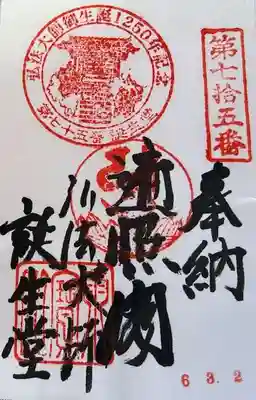 第七拾五番
弘法大師御生誕1250年記念
第七十五番
奉納
遍照閣
弘法大師
誕生堂
6 3. 2